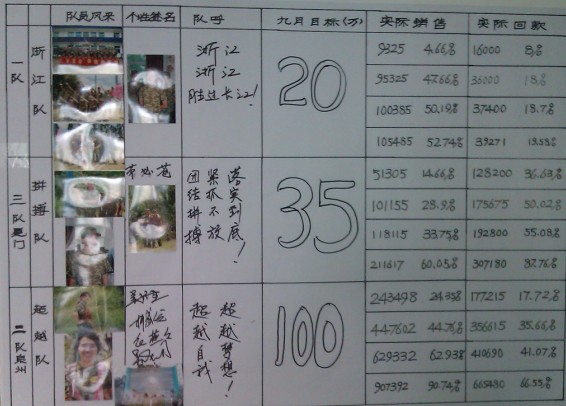 队员风采 个性签名 队呼 九月目标(万) 实际销售 实际回款
一队 浙江队
浙江
浙江
胜过长江!
20
9325 4.66% 16000 8%
95325 47.66% 36000 18%
100385 50.19% 37400 18.7%
105485 52.74% 39271
三队厦门 拼搏队
团结拼搏
紧抓不放
落实到底!
35
51305 14.66% 128200 36.63%
101155 28.9% 175675 50.02%
118115 33.75% 192800 55.08%
211617 60.05% 307180 87.76%
二队泉州 超越队
超越自我
超越梦想!
100
243498 24.35% 177215 17.72%
447602 44.76% 356615 35.66%
629332 62.93% 410690 41.07%
907392 90.74% 665480 66.55%